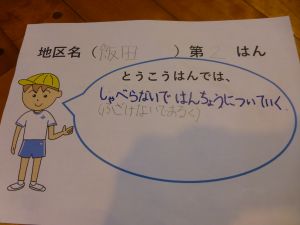 地区名（飯田　　）第２はん
とうこうはんでは、
しゃべらないではんちょうについていく
（ふざけないであるく）